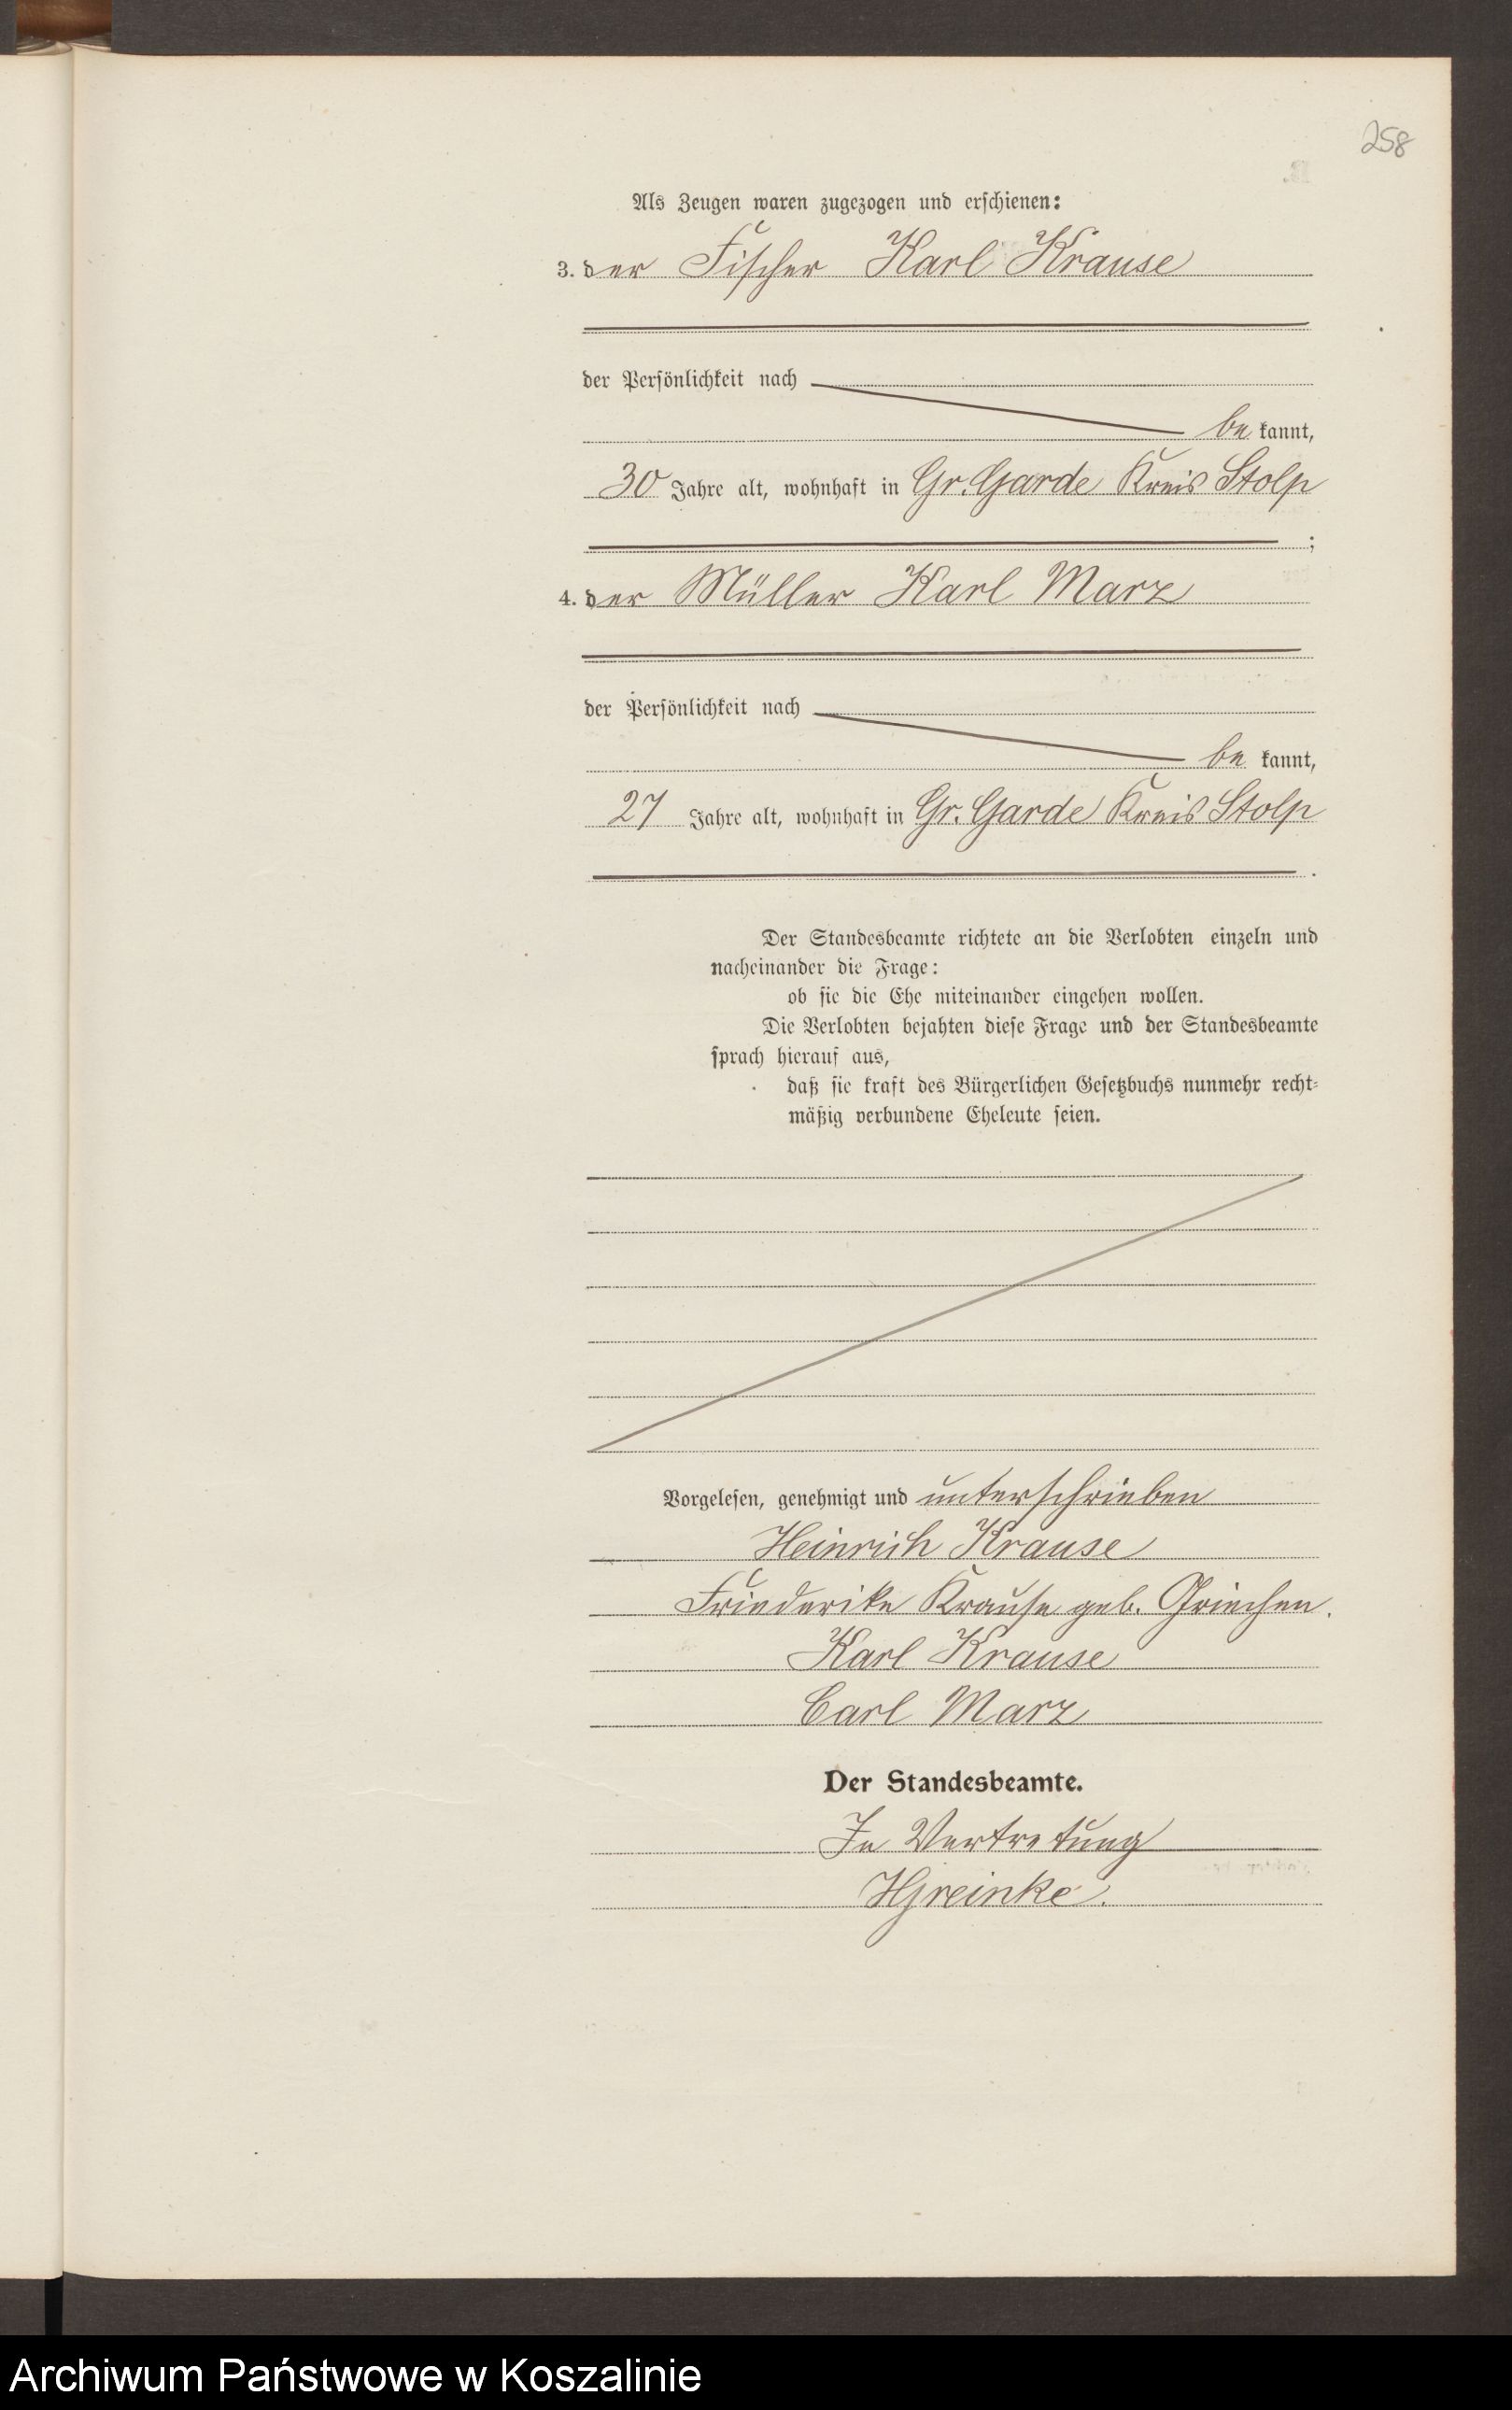 258
Als Zeugen waren zugezogen und erschienen:
3. der Fischer Karl Krause
der Persönlichkeit nach
be kannt,
30 Jahre alt, wohnhaft in Gr. Garde Kreis Stolp
;
4. der Müller Karl Marz
der Persönlichkeit nach
be kannt,
27 Jahre alt, wohnhaft in Gr. Garde Kreis Stolp
.
Der Standesbeamte richtete an die Verlobten einzeln und
nacheinander die Frage:
ob sie die Ehe miteinander eingehen wollen.
Die Verlobten bejahten diese Frage und der Standesbeamte
sprach hierauf aus,
daß sie kraft des Bürgerlichen Gesetzbuchs nunmehr recht-
mäßig verbundene Eheleute seien.
Vorgelesen, genehmigt und unterschrieben
Heinrich Krause
Friederike Krause geb. Griechen.
Karl Krause
Carl Marz
Der Standesbeamte.
In Vertretung
HGreinke.
Archiwum Państwowe w Koszalinie